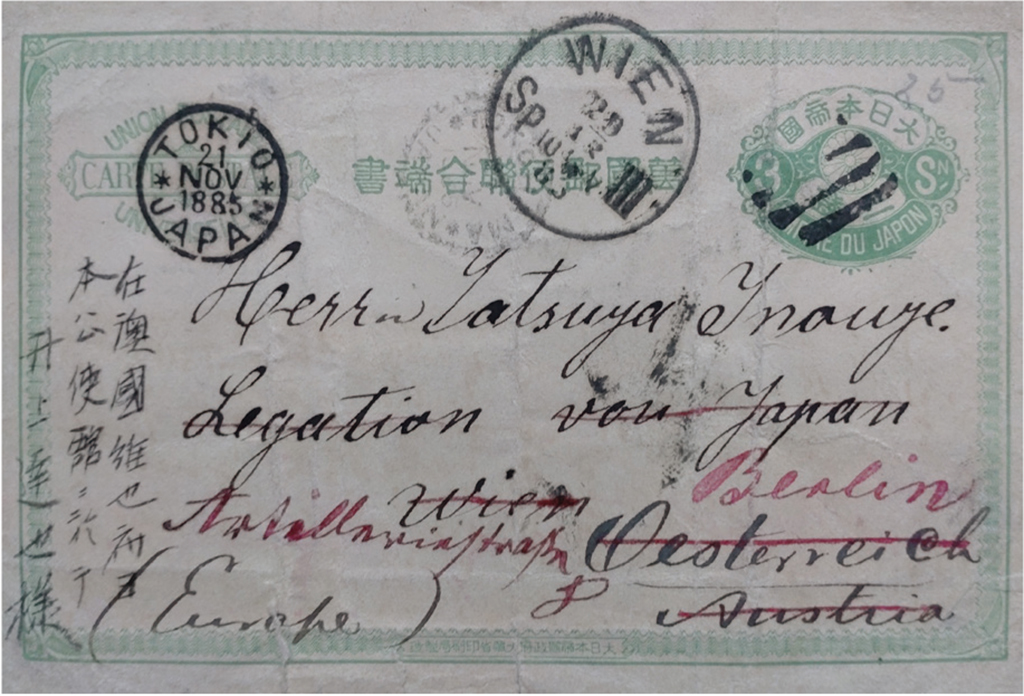 UNION
CARTE
UN
萬國郵便聯合端書
大日本帝國
3 SN
DU JAPON
25
TOKIO
21
NOV
1885
JAPAN
WIEN
Herrn Tatsuya Inouye.
Legation von Japan
Berlin
Wien
Artilleriestraße
8
Oesterreich
Austria
(Europe)
在澳國維也府日
本公使館ニ於テ
井上達也様